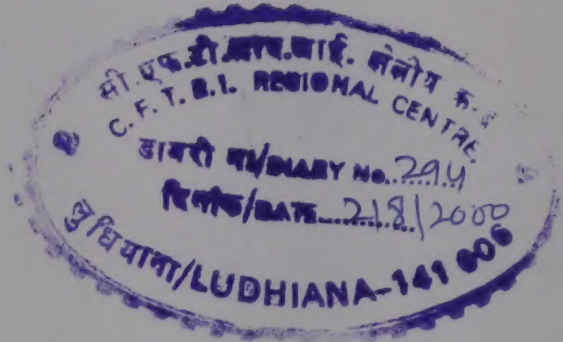 सी.एफ.टी.आर.आई. क्षेत्रीय
C. F. T. R. I. REGIONAL CENTRE.
डायरी नं/DIARY No. 294
दिनांक/DATE 2/8/2000
लुधियाना/LUDHIANA-141 006